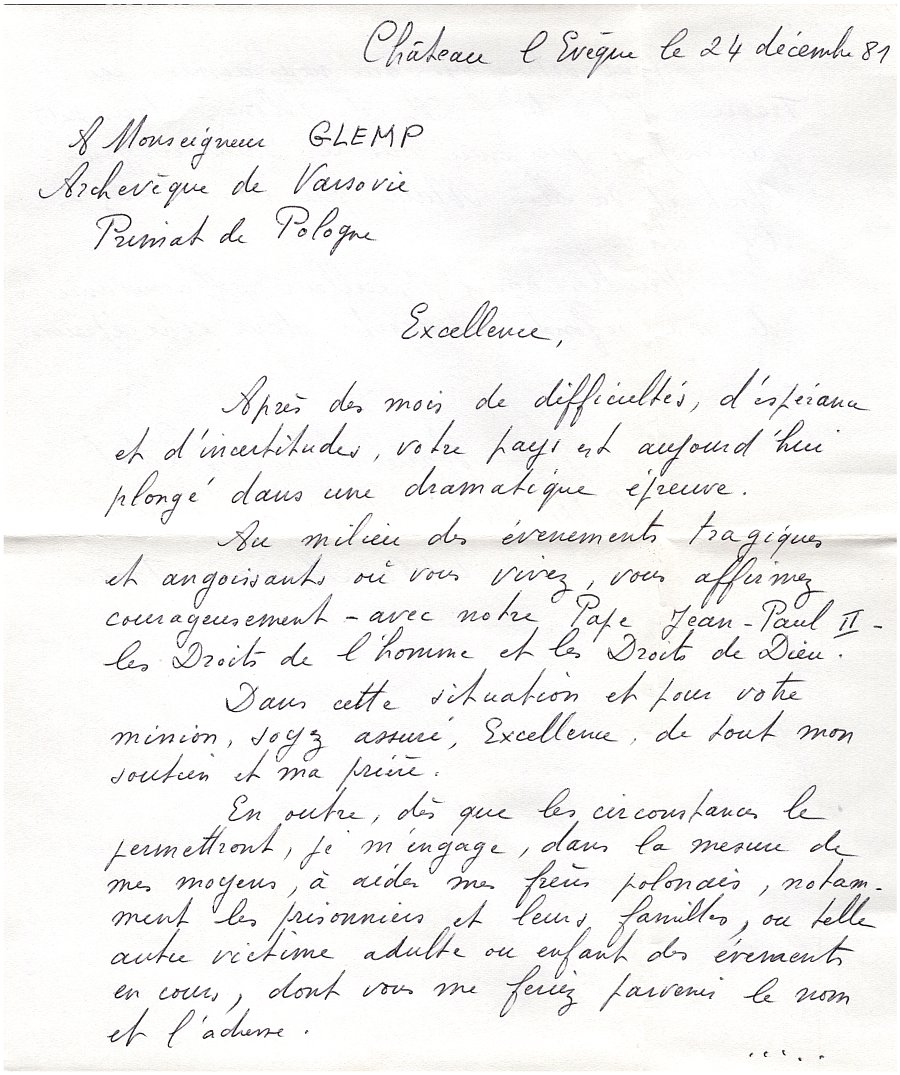 Château l Evêque le 24 décembre 81
A Monseigneur GLEMP
Archevêque de Varsovie
Primat de Pologne
Excellence,
Après des mois de difficultés, d'espérance
et d'incertitudes, votre pays est aujourd'hui
plongé dans une dramatique épreuve.
Au milieu des évenements tragiques
et angoissants où vous vivez, vous affirmez
courageusement - avec notre Pape Jean-Paul II -
les Droits de l'homme et les Droits de Dieu.
Dans cette situation et pour votre
mission, soyez assuré, Excellence, de tout mon
soutien et ma prière.
En outre, dès que les circonstances le
permettront, je m'engage, dans la mesure de
mes moyens, à aider mes frères polonais, notam-
ment les prisonniers et leurs familles, ou telle
autre victime adulte ou enfant des évements
en cours, dont vous me feriez parvenir le nom
et l'adresse.
.....